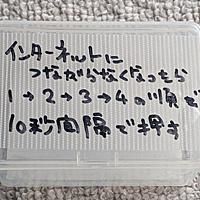 インターネットに
つながらなくなったら
1→2→3→4の順で
10秒間隔で押す